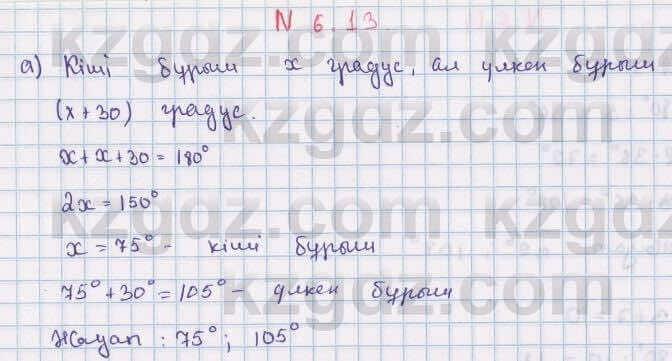 N 6.13
а) Кіші бұрыш x градус, ал үлкен бұрыш
(x+30) градус.
x+x+30=180°
2x=150°
x=75° - кіші бұрыш
75°+30°=105° - үлкен бұрыш
Жауап: 75°; 105°
kzgdz.com
kzgdz.com
kzgdz.com
kzgdz.com